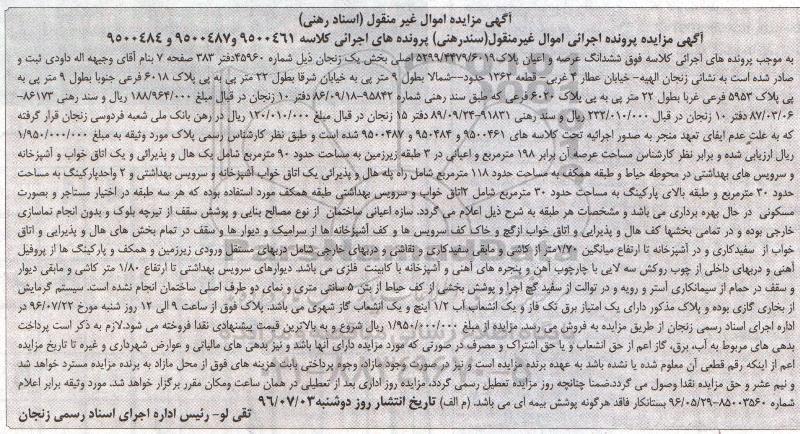 آگهی مزایده اموال غیر منقول (اسناد رهنی)
آگهی مزایده پرونده اجرائی اموال غیرمنقول(سندرهنی) پرونده های اجرائی کلاسه ۹۵۰۰۴۶۱ و۹۵۰۰۴۸۷ و ۹۵۰۰۴۸۴
به موجب پرونده های اجرائی کلاسه فوق ششدانگ عرصه و اعیان پلاک۵۲۹۹/۴۴۷۹/۶۰۱۹ اصلی بخش یک زنجان ذیل شماره ۴۵۹۶۰دفتر ۳۸۳ صفحه ۷ بنام آقای وجیهه اله داودی ثبت و
صادر شده است به نشانی زنجان الهیه- خیابان عطار ۴ غربی- قطعه ۱۳۶۲ حدود---شمالا بطول ۹ متر پی به خیابان شرقا بطول ۲۲ متر پی به پی پلاک ۶۰۱۸ فرعی جنوبا بطول ۹ متر پی به
پی پلاک ۵۹۵۳ فرعی غربا بطول ۲۲ متر پی به پی پلاک ۶۰۲۰ فرعی که طبق سند رهنی شماره ۹۵۸۴۲-۸۶/۰۹/۱۸ دفتر ۱۰ زنجان در قبال مبلغ ۱۸۸/۹۶۴/۰۰۰ ریال و سند رهنی ۸۶۱۷۳-
۸۷/۰۳/۰۶ دفتر ۱۰ زنجان در قبال ۲۳۲/۰۱۰/۰۰۰ ریال و سند رهنی ۹۱۸۳۱-۸۹/۰۹/۲۴ دفتر ۱۵ زنجان در قبال مبلغ ۱۲۰/۰۱۰/۰۰۰ ریال در رهن بانک ملی شعبه فردوسی زنجان قرار گرفته
که به علت عدم ایفای تعهد منجر به صدور اجرائیه تحت کلاسه های ۹۵۰۰۴۶۱ و ۹۵۰۰۴۸۴ و ۹۵۰۰۴۸۷ شده است و طبق نظر کارشناس رسمی پلاک مورد وثیقه به مبلغ ۱/۹۵۰/۰۰۰/۰۰۰
ریال ارزیابی شده و برابر نظر کارشناس مساحت عرصه آن برابر ۱۹۸ مترمربع و اعیانی در ۳ طبقه زیرزمین به مساحت حدود ۹۰ مترمربع شامل یک هال و پذیرائی و یک اتاق خواب و آشپزخانه
و سرویس های بهداشتی در محوطه حیاط و طبقه همکف به مساحت حدود ۱۱۸ مترمربع شامل راه پله هال و پذیرائی یک اتاق خواب آشپزخانه و سرویس بهداشتی و ۲ واحدپارکینگ به مساحت
حدود ۳۰ مترمربع و طبقه بالای پارکینگ به مساحت حدود ۳۰ مترمربع شامل ۲اتاق خواب و سرویس بهداشتی طبقه همکف مورد استفاده بوده که هر سه طبقه در اختیار مستاجر و بصورت
مسکونی در حال بهره برداری می باشد و مشخصات هر طبقه به شرح ذیل اعلام می گردد. سازه اعیانی ساختمان از نوع مصالح بنایی و پوشش سقف از تیرچه بلوک و بدون انجام نماسازی
خارجی بوده و در تمامی بخشها کف هال و پذیرایی و اتاق خواب ازگچ و خاک کف سرویس ها و کف آشپزخانه ها از سرامیک و دیوار ها و سقف در تمام بخش های هال و پذیرایی و اتاق
خواب از سفیدکاری و در آشپزخانه تا ارتفاع میانگین ۱/۷۰متر از کاشی و مابقی سفیدکاری و نقاشی و دربهای خارجی شامل دربهای مستقل ورودی زیرزمین و همکف و پارکینگ ها از پروفیل
آهنی و دربهای داخلی از چوب روکش سه لایی با چارچوب آهن و پنجره های آهنی و آشپزخانه با کابینت فلزی می باشد. دیوارهای سرویس بهداشتی تا ارتفاع ۱/۸۰ متر کاشی و مابقی دیوار
و سقف در حمام از سیمانکاری آستر و رویه و در توالت از سفید گچ اجرا و پوشش بخشی از کف حیاط از بتن ۵ سانتی متری و نمای دو طرف اصلی ساختمان انجام نشده است. سیستم گرمایش
از بخاری گازی بوده و پلاک مذکور دارای یک امتیاز برق تک فاز و یک انشعاب آب ۱/۲ اینچ و یک انشعاب گاز شهری می باشد. پلاک فوق از ساعت ۹ الی ۱۲ روز شنبه مورخ ۹۶/۰۷/۲۲ در
اداره اجرای اسناد رسمی زنجان از طریق مزایده به فروش می رسد. مزایده از مبلغ ۱/۹۵۰/۰۰۰/۰۰۰ ریال شروع و به بالاترین قیمت پیشنهادی نقدا فروخته می شود.لازم به ذکر است پرداخت
بدهی های مربوط به آب، برق، گاز اعم از حق انشعاب و یا حق اشتراک و مصرف در صورتی که مورد مزایده دارای آنها باشد و نیز بدهی های مالیاتی و عوارض شهرداری و غیره تا تاریخ مزایده
اعم از اینکه رقم قطعی آن معلوم شده یا نشده باشد به عهده برنده مزایده است و نیز در صورت وجود مازاد، وجوه پرداختی بابت هزینه های فوق از محل مازاد به برنده مزایده مسترد خواهد شد
و نیم عشر و حق مزایده نقدا وصول می گردد.ضمنا چنانچه روز مزایده تعطیل رسمی گردد، مزایده روز اداری بعد از تعطیلی در همان ساعت ومکان مقرر برگزار خواهد شد. مورد وثیقه برابر اعلام
شماره ۸۵۰۰۳۵۶۰-۹۶/۰۵/۲۹ بستانکار فاقد هرگونه پوشش بیمه ای می باشد. (م الف) تاریخ انتشار روز دوشنبه۹۶/۰۷/۰۳
تقی لو- رئیس اداره اجرای اسناد رسمی زنجان